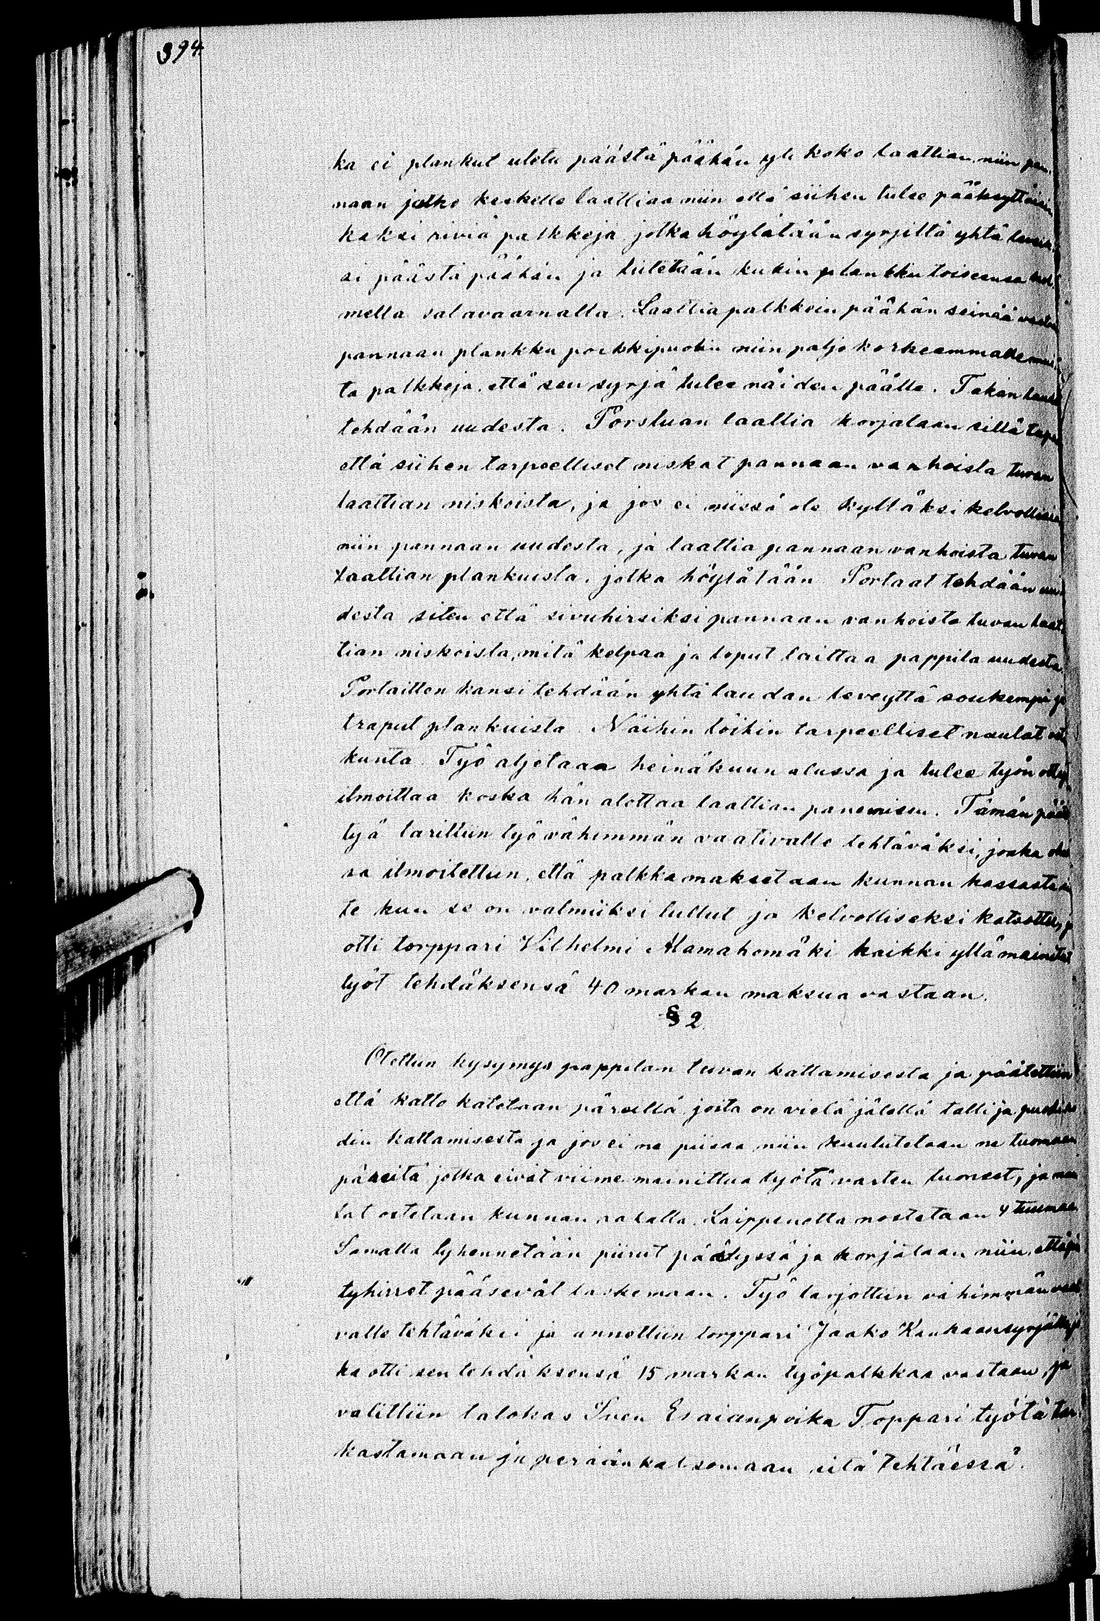 394.
ka ei plankut uletu päästä päähän yli koko laattian, niin pan
naan jatko keskelle laattiaa niin että siihen tulee pääksyttäisin
kaksi riviä palkkeja jotka höylätään syrjiltä yhtä
si päästä päähän ja liitetään kukin plankku toiseensa
mella salavaarnalla. Laattia palkkein päähän seinää vasten
pannaan plankku poikkipuolin niin paljo korkeammalle
ta palkkeja, että sen syrjä tulee näiden päälle. Takan
tehdään uudesta. Porstuan laattia korjataan sillä
että siihen tarpeelliset niskat pannaan vanhoista tuvan
laattian niskoista, ja jos ei niissä ole kyllä̈ksi kelvollisia
niin pannaan uudesta, ja laattia pannaan vanhoista tuvan
laattian plankuista, jotka höylätään. Portaat tehdään uu
desta siten että sivuhirsiksi pannaan vanhoista tuvan laat
tian niskoista, mitä kelpaa ja loput laittaa pappila uudesta.
Portaitten kansi tehdään yhtä laudan leveyttä soukempi ja
traput plankuista. Näihin töihin tarpeelliset naulat
kunta. Työ aljetaaa heinäkuun alussa ja tulee työn
ilmoittaa koska hän alottaa laattian panemisen. Tämän
työ larittiin työ vähimmän vaativalle tehtäväksi, jonka
sa ilmoitettiin, että palkka maksetaan kunnan kassasta
te kun se on valmiiksi tullut ja kelvolliseksi katsottu, ja
otti torppari Vilhelmi Alamahomäki kaikki yllämainitut
työt tehdäksensä 40 markan maksua vastaan.
§ 2
Otettiin kysymys pappilan tuvan kattamisesta ja päätettiin
että katto katetaan päreillä joita on vielä jälellä talli ja
din kattamisesta ja jos ei ne piisaa, niin kuulutetaan ne tuomaan
päreitä jotka eivät viime mainittua työtä varten tuoneet, ja
tat ostetaan kunnan rahalla. Laippenotta nostetaan 4 tuumaa
Samalla lyhennetään piirut päätyssä ja korjataan niin, että
tyhirret pääsevät laskemaan. Työ larjottiin vähimmän
valle tehtäväksi ja annettiin torppari Jaako Kauhaansyrjälle
ka otti sen tehdäksensä 15 markan työpalkkaa vastaan, ja
valittiin talokas Sven Esaianpoika Toppari työtä tar
kastamaan ja perään katsomaan sitä tehtäessä.